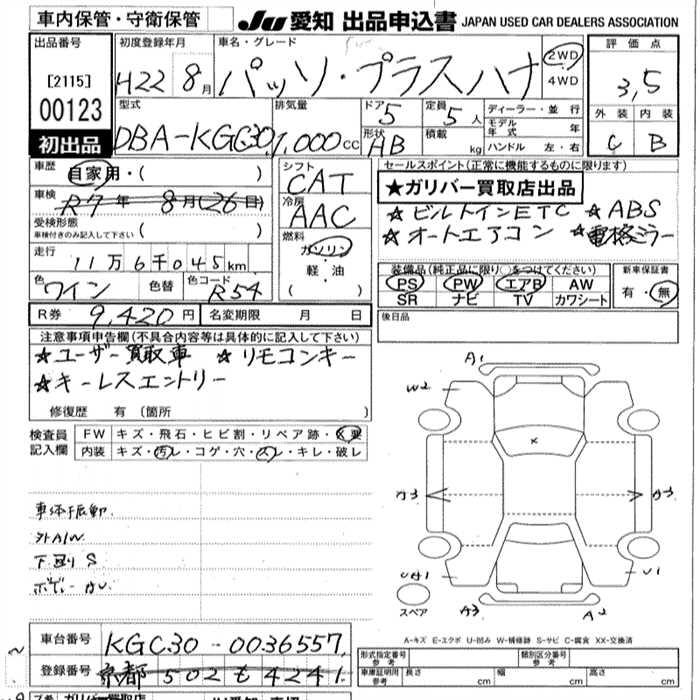 車内保管・守衛保管
JU 愛知 出品申込書 JAPAN USED CAR DEALERS ASSOCIATION
出品番号
[2115]
00123
初出品
初度登録年月
H22 8月
車名・グレード
パッソ・プラスハナ
2WD
4WD
評価点
3,5
外装 内装
C B
型式
DBA-KGC30
排気量
1,000cc
ドア
5
形状
AB
定員
5人
積載
kg
ディーラー・並行
モデル年式 年
ハンドル 左・右
車歴
自家用・( )
車検
R7年 8月(26日)
受検形態
車検付きのみ記入して下さい ( )
走行
11万6千045km
色
ワイン
色替
色コード
R54
シフト
CAT
冷房
AAC
燃料
ガソリン
軽・油
( )
セールスポイント(正常に機能するものに限ります)
★ガリバー買取店出品
☆ビルトインETC ☆ABS
☆オートエアコン ☆電格ミラー
装備品(純正品に限り○をつけてください)
PS PW エアB AW
SR ナビ TV カワシート
新車保証書
有・無
R券 9,420円
名変期限 月 日
後日品
注意事項申告欄(不具合内容等は具体的に記入して下さい)
☆ユーザー買取車 ☆リモコンキー
☆キーレスエントリー
修復歴 有 (箇所 )
検査員記入欄
FW キズ・飛石・ヒビ割・リペア跡・X要
内装 キズ・汚レ・コゲ・穴・スレ・キレ・破レ
車体振動
外AW
下廻りS
A1
W2
A3
A3
U1
A3
A2
スペア
A-キズ E-エクボ U-凹み W-補修跡 S-サビ C-腐食 XX-交換済
車台番号
KGC30-0036557
登録番号
京都 502 も 4241
形式指定番号
参考
類別区分番号
参考
車庫証明用
参考
長さ cm 幅 cm 高さ cm
ガリバー買取店